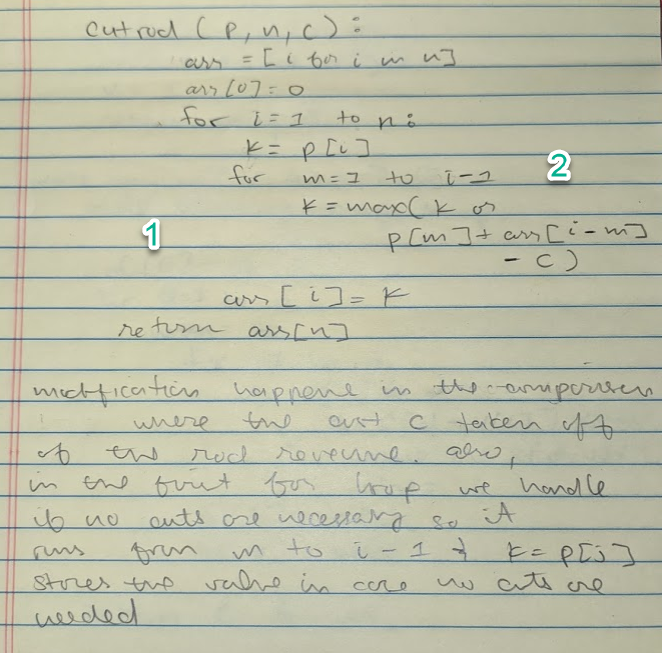 cutrod (p, n, c):
arr = [i for i in n]
arr[0]=0
for i=1 to n:
k= p[i]
for m=1 to i-1
2
k=max( k or
1
p[m]+ arr[i-m]
- c)
arr[i]=k
return arr[n]
modification happens in the comparison
where the cost c taken off
of the rod revenue. also,
in the first for loop we handle
if no cuts are necessary so it
runs from m to i-1 & k=p[j]
stores the value in case no cuts are
needed